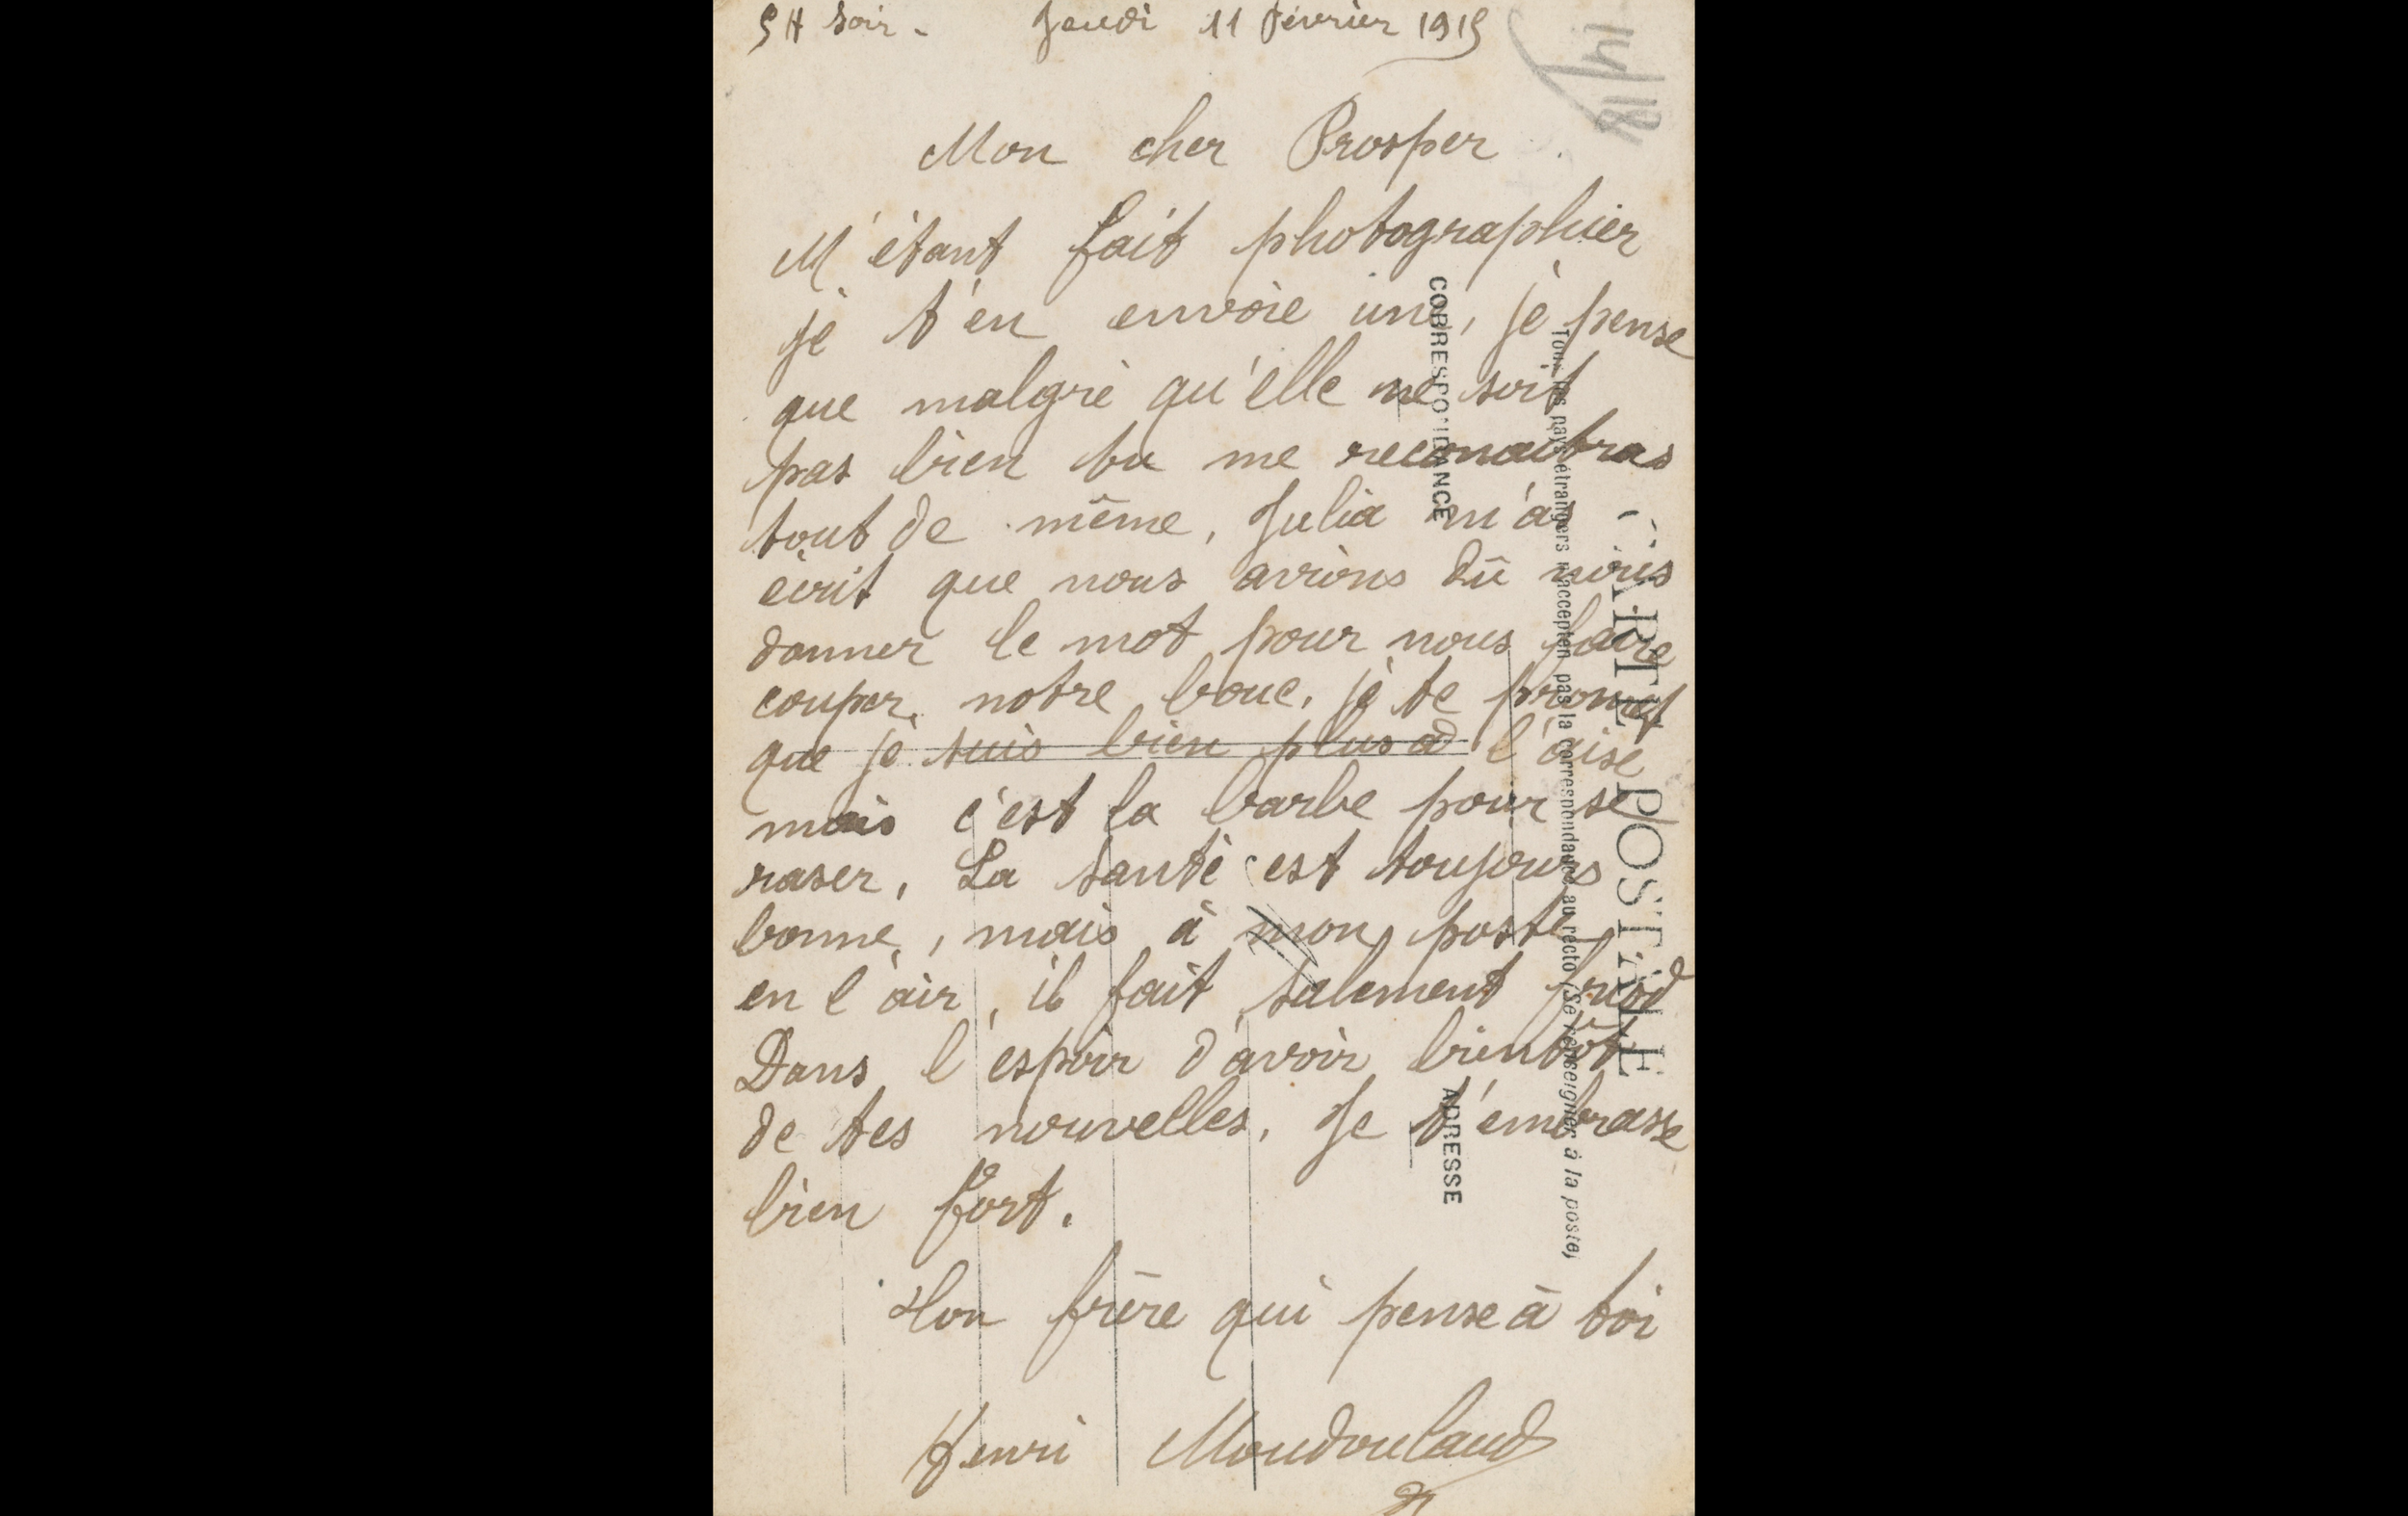 5 H soir. Jeudi 11 février 1915
14/18
Mon cher Prosper
M'étant fait photographier
je t'en envoie une, je pense
que malgré qu'elle ne soit
pas bien tu me reconaitras
tout de même, Julia m'as
écrit que nous avions dû nous
donner le mot pour nous faire
couper notre bouc, je te promet
que je suis bien plus à l'aise
mais c'est la barbe pour se
raser. La santé est toujours
bonne, mais à mon poste
en l'air, il fait salement friod
Dans l'espoir d'avoir bientôt
de tes nouvelles. Je t'embrasse
bien fort.
Ton frère qui pense à toi
Henri Moudoulaud
CARTE POSTALE
Tous les pays étrangers n'acceptent pas la correspondance au recto (Se renseigner à la poste)
CORRESPONDANCE
ADRESSE